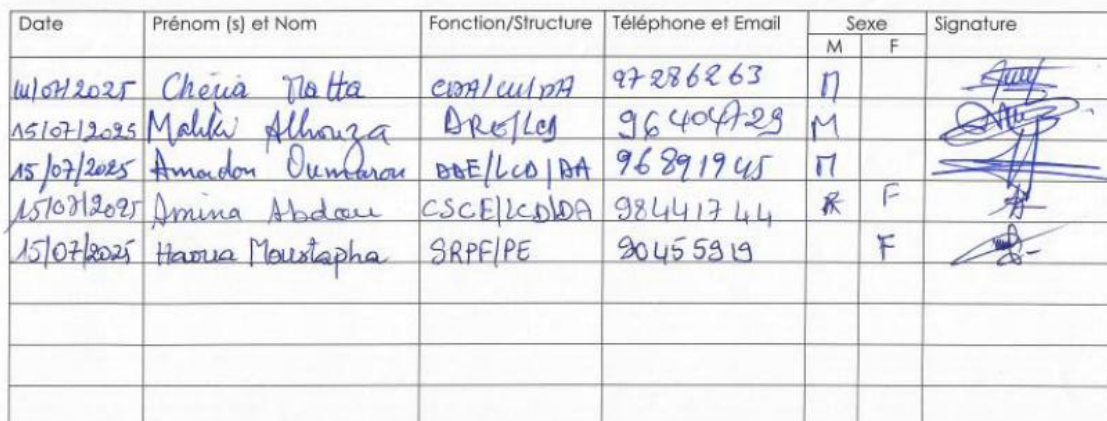 Date Prénom (s) et Nom Fonction/Structure Téléphone et Email Sexe Signature
M F
14/07/2025 Chéria 97286263 M
15/07/2025 Maliki Alhouza DRE/LCD 96404729 M
15/07/2025 Amadou Oumarou DDE/LCD/DA 96891945 M
15/07/2025 Amina Abdou CSCE/LCD/DA 98441744 F
15/07/2025 Haoua Moustapha SRPF/PE 90455919 F